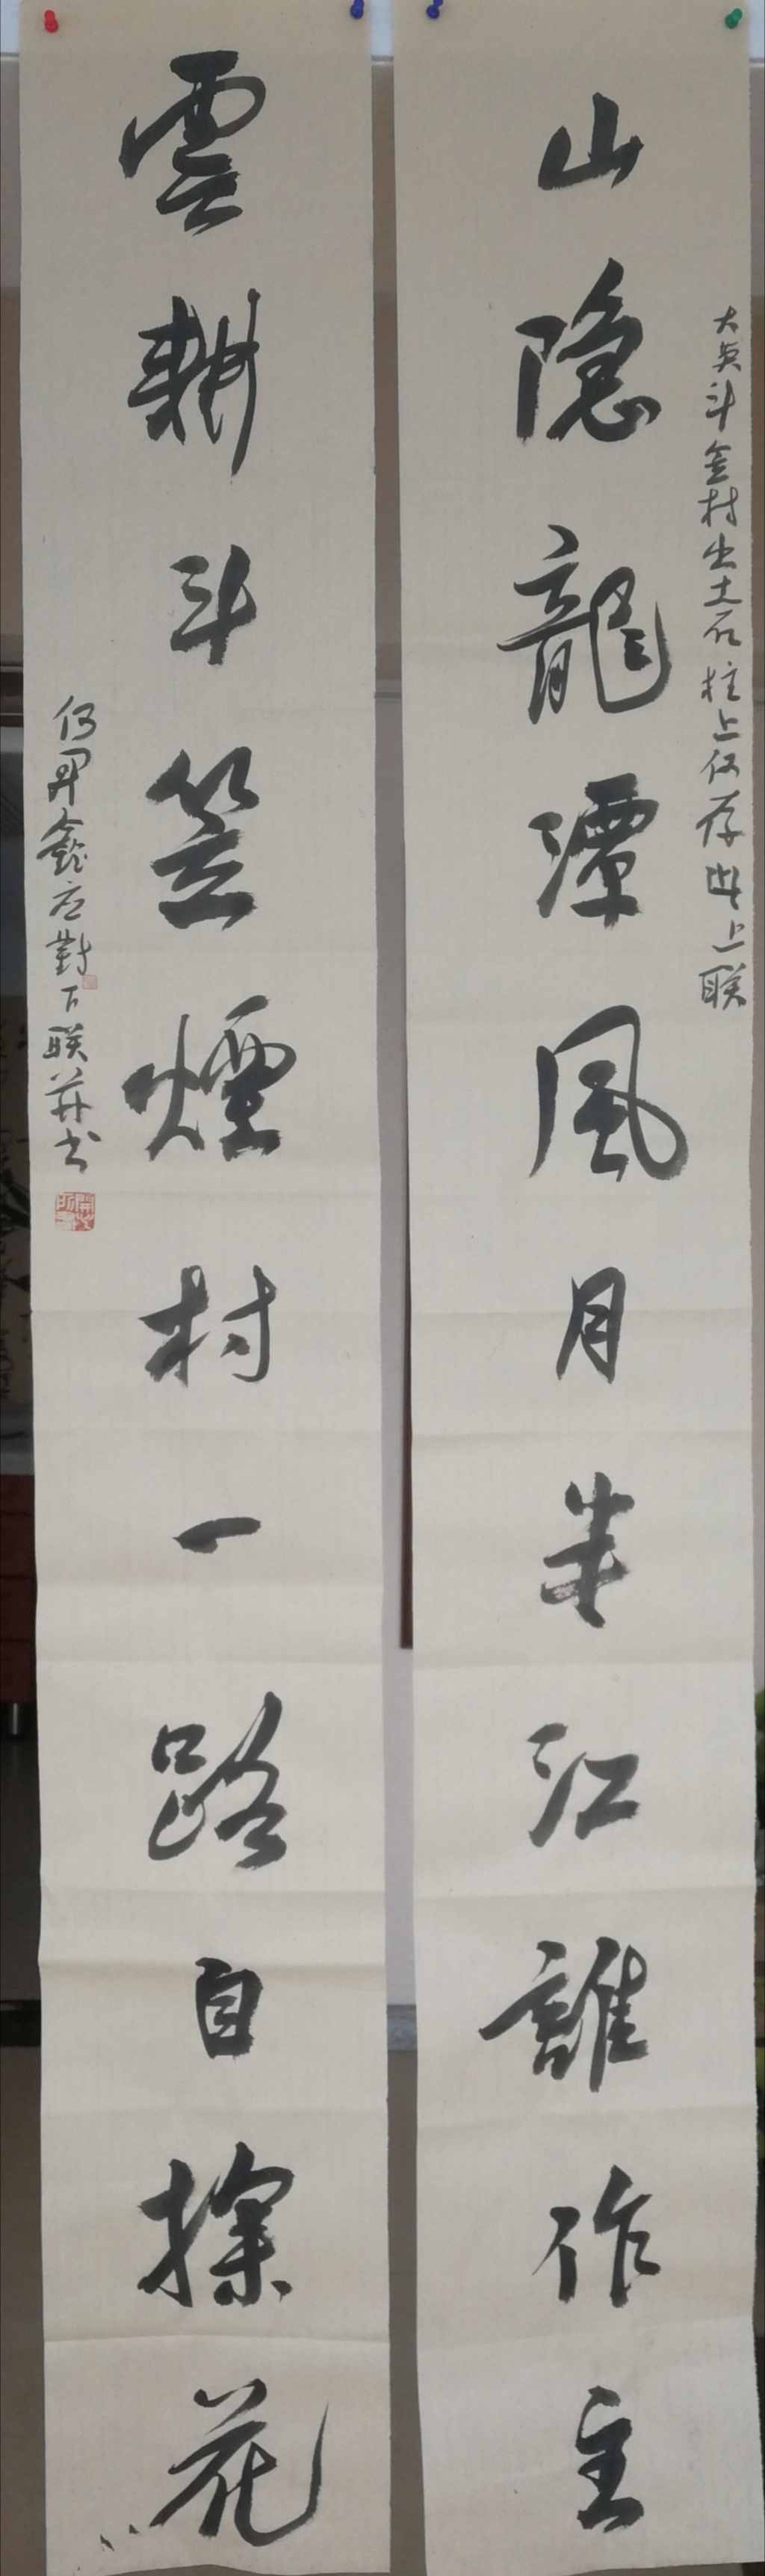 大英斗金村出土石柱上仅存此上联
山隐龍潭風月半江誰作主
雲耕斗笠煙村一路自探花
何开鑫应對下联并书